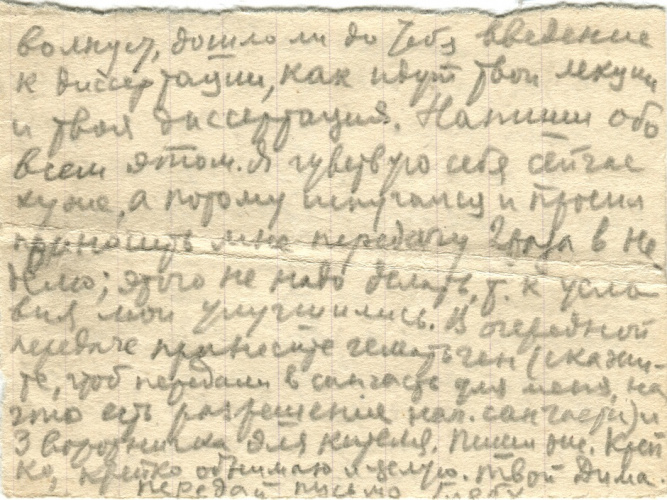 волнуют, дошло ли до Тебя введение
к диссертации, как идут твои лекции
и твоя диссертация. Напиши обо
всем этом. Я чувствую себя сейчас
хуже, а потому и просил
приносить мне передачу 2 раза в не
делю; этого не надо делать, т. к усло
вия мои улучшились. В очередной
передаче принесите гематоген (скажи-
те, чтоб передали в санчасть для меня, на
это есть разрешение нач. санчасти) и
3 воротничка для кителя. Пиши мне. Креп
ко, крепко обнимаю и целую. Твой Дима.
Передай письмо